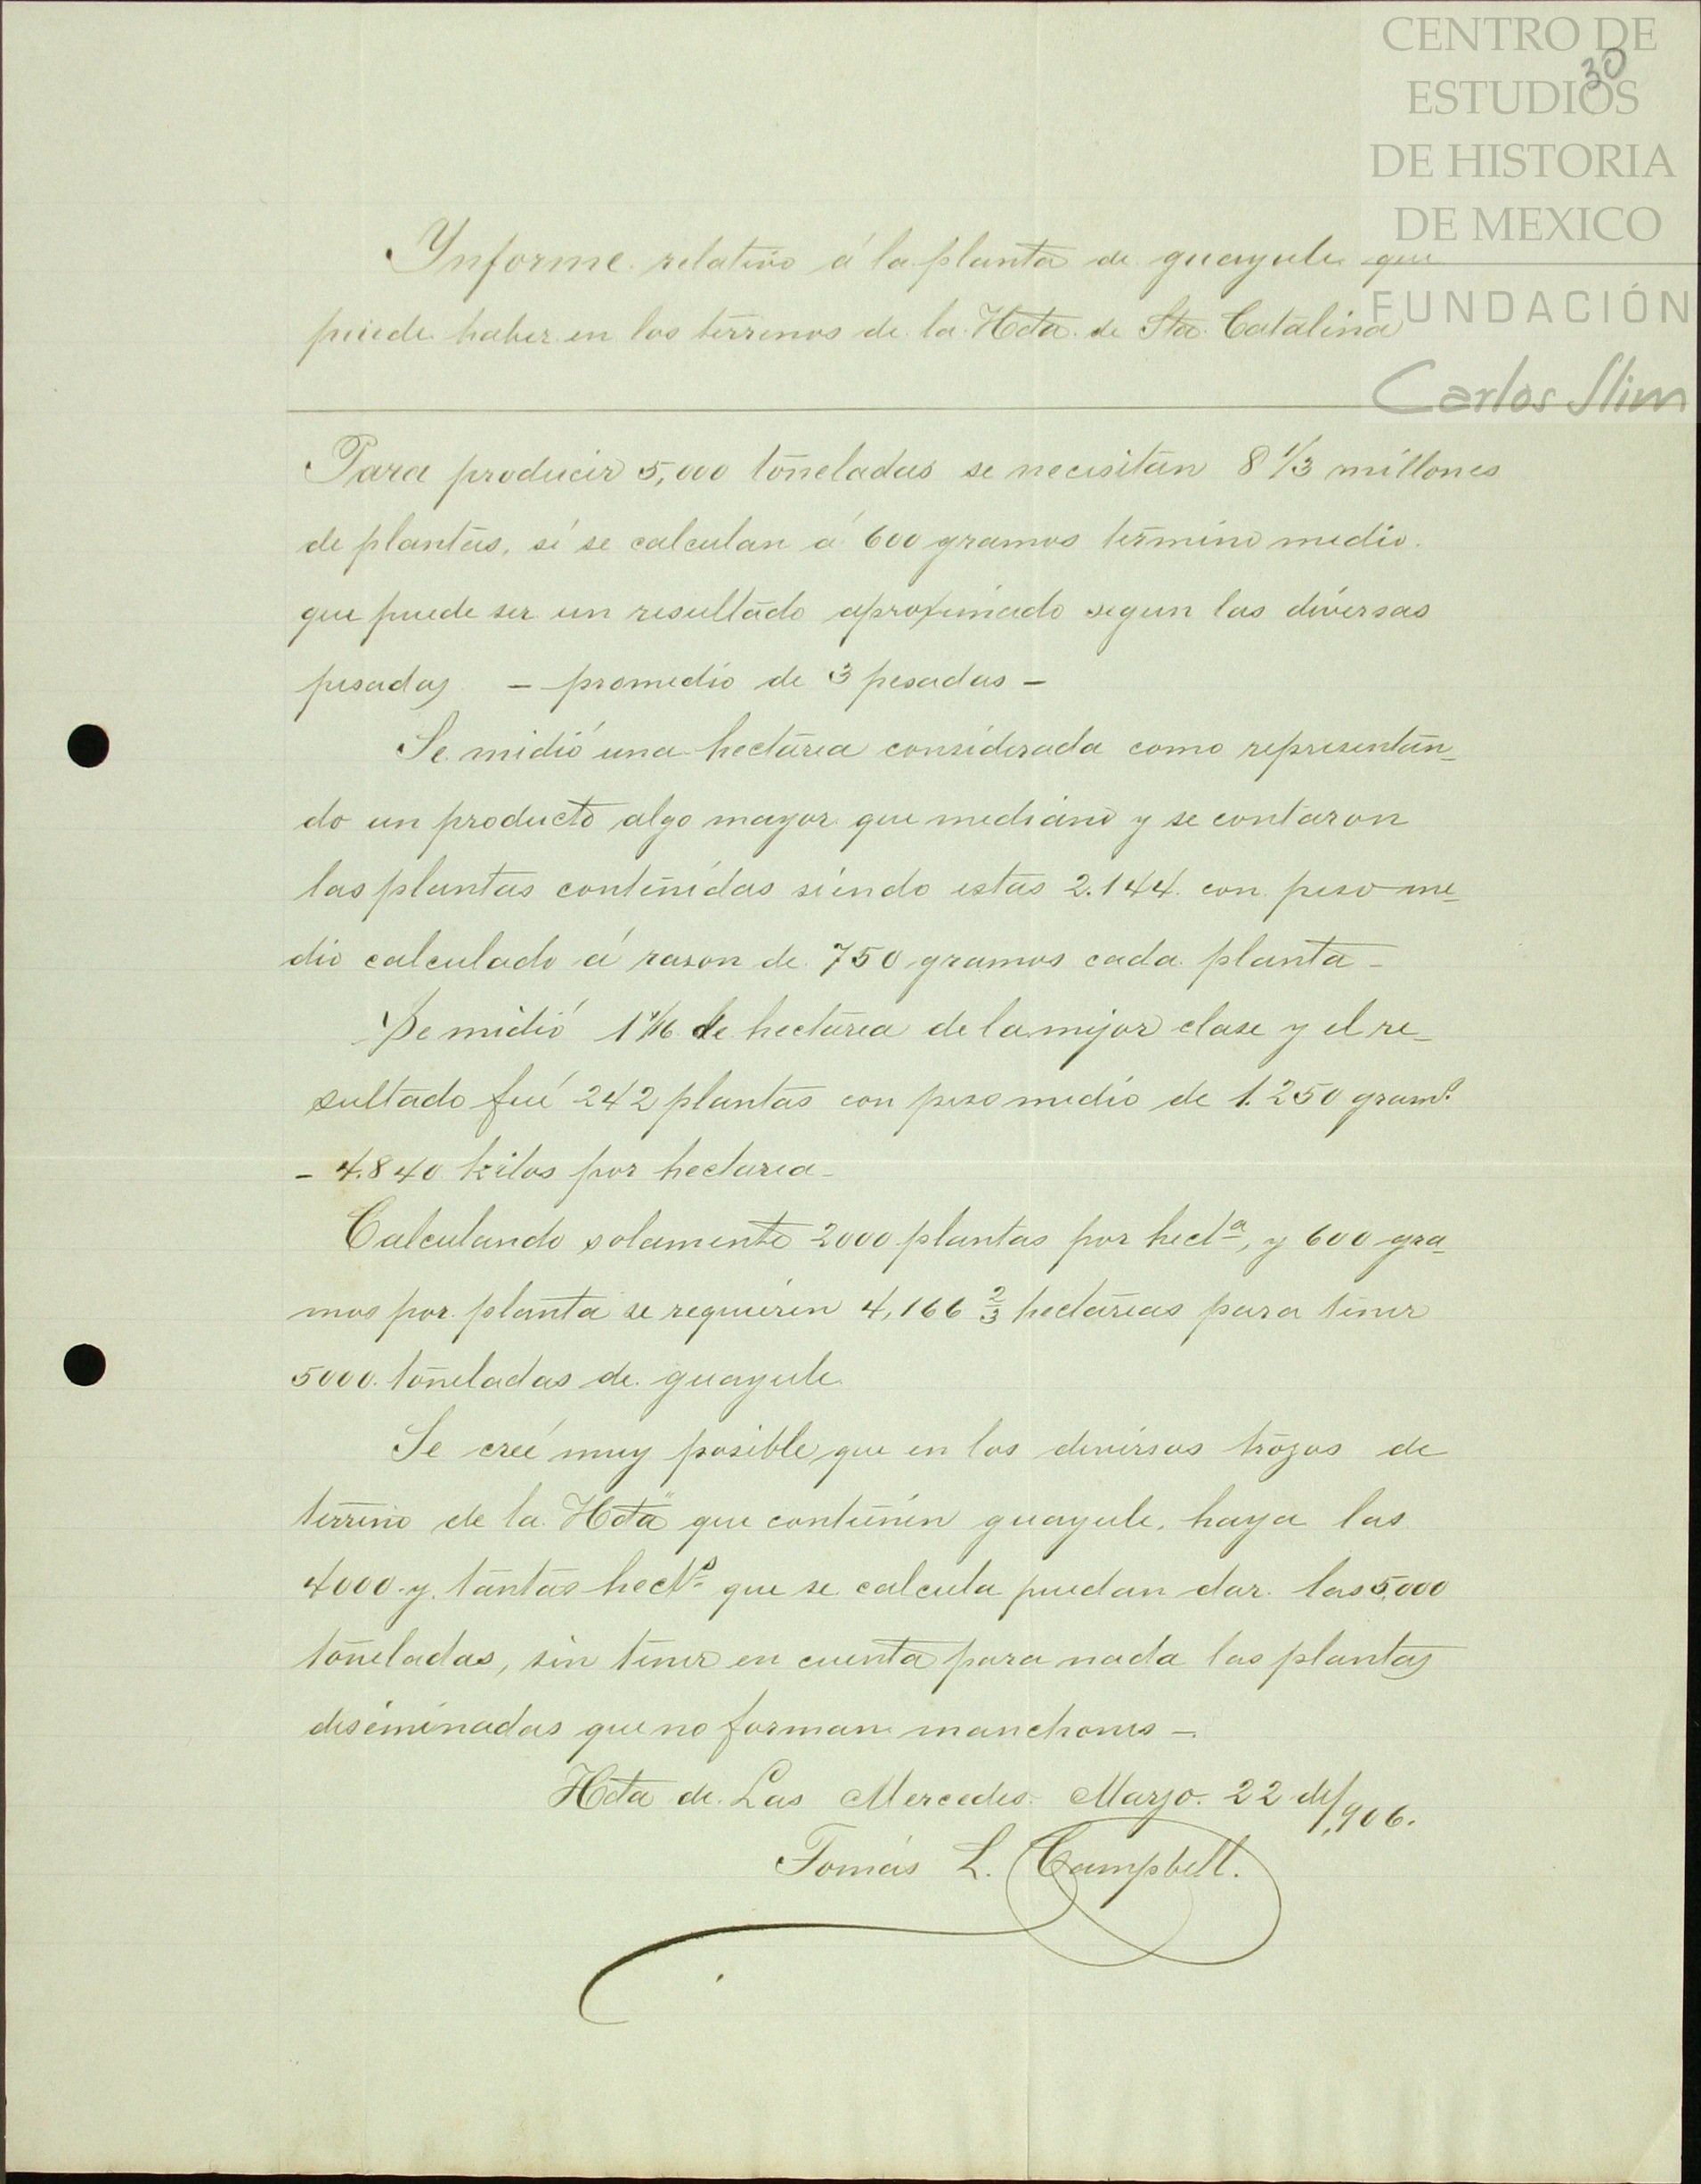 CENTRO DE
ESTUDIOS
DE HISTORIA
DE MEXICO
FUNDACIÓN
Carlos Slim
30
Ynforme relativo á la planta de guayule que
puede haber en los terrenos de la Hda. de Sta. Catalina
Para producir 5,000 toneladas se necesitan 8 1/3 millones
de plantas, si se calculan á 600 gramos término medio.
que puede ser un resultado aproximado segun las diversas
pesadas. - promedio de 3 pesadas -
Se midió una hectárea considerada como representan-
do un producto algo mayor que mediano y se contaron
las plantas contenidas siendo estas 2.144. con peso me-
dio calculado á rason de 750 gramos cada planta -
Se midió 1/16 de hectárea de la mejor clase y el re-
sultado fué 242 plantas con peso medio de 1.250 grams.
- 4.840 kilos por hectarea -
Calculando solamente 2000 plantas por hecta, y 600 gra-
mos por planta se requieren 4,166 2/3 hectáreas para tener
5000. toneladas de guayule.
Se creé muy posible que en los diversos trozos de
terreno de la Hda que contienen guayule, haya las
4000 y tantas hects. que se calcula puedan dar las 5,000
toneladas, sin tener en cuenta para nada las plantas
diseminadas que no forman manchones -.
Hda de Las Mercedes Marzo. 22 de/1,906.
Tomás L. Campbell.